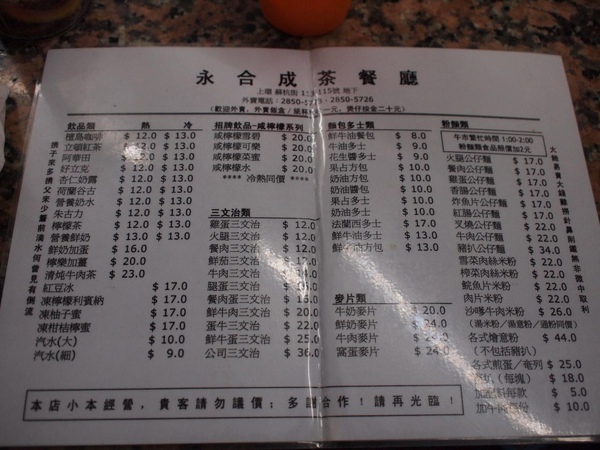 永合成茶餐廳
上環 蘇杭街 115號 地下
外賣電話：2850-5723・2850-5726
飲品類 熱 冷
檀島咖啡 $ 12.0 $ 13.0
立頓紅茶 $ 12.0 $ 13.0
阿華田 $ 12.0 $ 13.0
好立克 $ 12.0 $ 13.0
杏仁奶露 $ 12.0 $ 13.0
荷蘭谷古 $ 12.0 $ 13.0
營養奶水 $ 12.0 $ 13.0
朱古力 $ 12.0 $ 13.0
檸檬茶 $ 12.0 $ 13.0
營養鮮奶 $ 13.0 $ 13.0
鮮奶加蛋 $ 16.0
檸樂加薑 $ 20.0
清炖牛肉茶 $ 23.0
紅豆冰 $ 17.0
凍檸檬利賓納 $ 17.0
凍柚子蜜 $ 17.0
凍柑桔檸蜜 $ 17.0
汽水(大) $ 10.0
汽水(細) $ 9.0
招牌飲品-咸檸檬系列
咸檸檬雪碧 $ 20.0
咸檸檬可樂 $ 20.0
咸檸檬菜蜜 $ 20.0
咸檸檬水 $ 20.0
**** 冷熱同價 ****
三文治類
雞蛋三文治 $ 12.0
火腿三文治 $ 12.0
餐肉三文治 $ 12.0
鮮茄三文治 $ 12.0
牛肉三文治 $ 14.0
腿蛋三文治 $ 16.0
餐肉蛋三文治 $ 16.0
鮮牛肉三文治 $ 20.0
蛋牛三文治 $ 22.0
鮮牛蛋三文治 $ 25.0
公司三文治 $ 36.0
麵包多士類
鮮牛油餐包 $ 8.0
牛油多士 $ 9.0
花生醬多士 $ 9.0
果占方包 $ 10.0
奶油方包 $ 10.0
奶油醬包 $ 10.0
果占多士 $ 10.0
奶油多士 $ 10.0
法蘭西多士 $ 17.0
鮮牛油多士 $ 13.0
鮮牛油方包 $ 13.0
麥片類
牛奶麥片 $ 20.0
鮮奶麥片 $ 24.0
牛肉麥片 $ 24.0
窩蛋麥片 $ 24.0
粉麵類
午市繁忙時間 1:00-2:00
粉麵類食品賬價加2元
火腿公仔麵 $ 17.0
餐肉公仔麵 $ 17.0
雞蛋公仔麵 $ 17.0
香腸公仔麵 $ 17.0
炸魚片公仔麵 $ 17.0
紅腸公仔麵 $ 17.0
叉燒公仔麵 $ 22.0
牛肉公仔麵 $ 22.0
豬扒公仔麵 $ 34.0
雪菜肉絲米粉 $ 22.0
榨菜肉絲米粉 $ 22.0
鯪魚片米粉 $ 22.0
肉片米粉 $ 22.0
沙嗲牛肉米粉 $ 26.0
(湯米粉／湯意粉／通粉同價)
各式燴意粉 $ 44.0
(不包括豬扒)
各式煎蛋／奄列 $ 25.0
豬扒（每塊） $ 18.0
$ 5.0
$ 10.0
本店小本經營，貴客請勿議價；多謝合作！請再光臨！